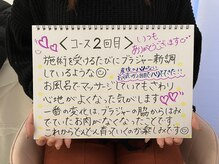 <コース2回目>
いつも
ありがとうございます
施術を受けるたびに ブラジャー新調
しているような☺
お風呂でマッサージしていてもさわり
心地がよくなった気がします
一番の変化は、ブラジャーの脇からはみ
でていたお肉がなくなったことです
これからどんどん育てていくのが楽しみです